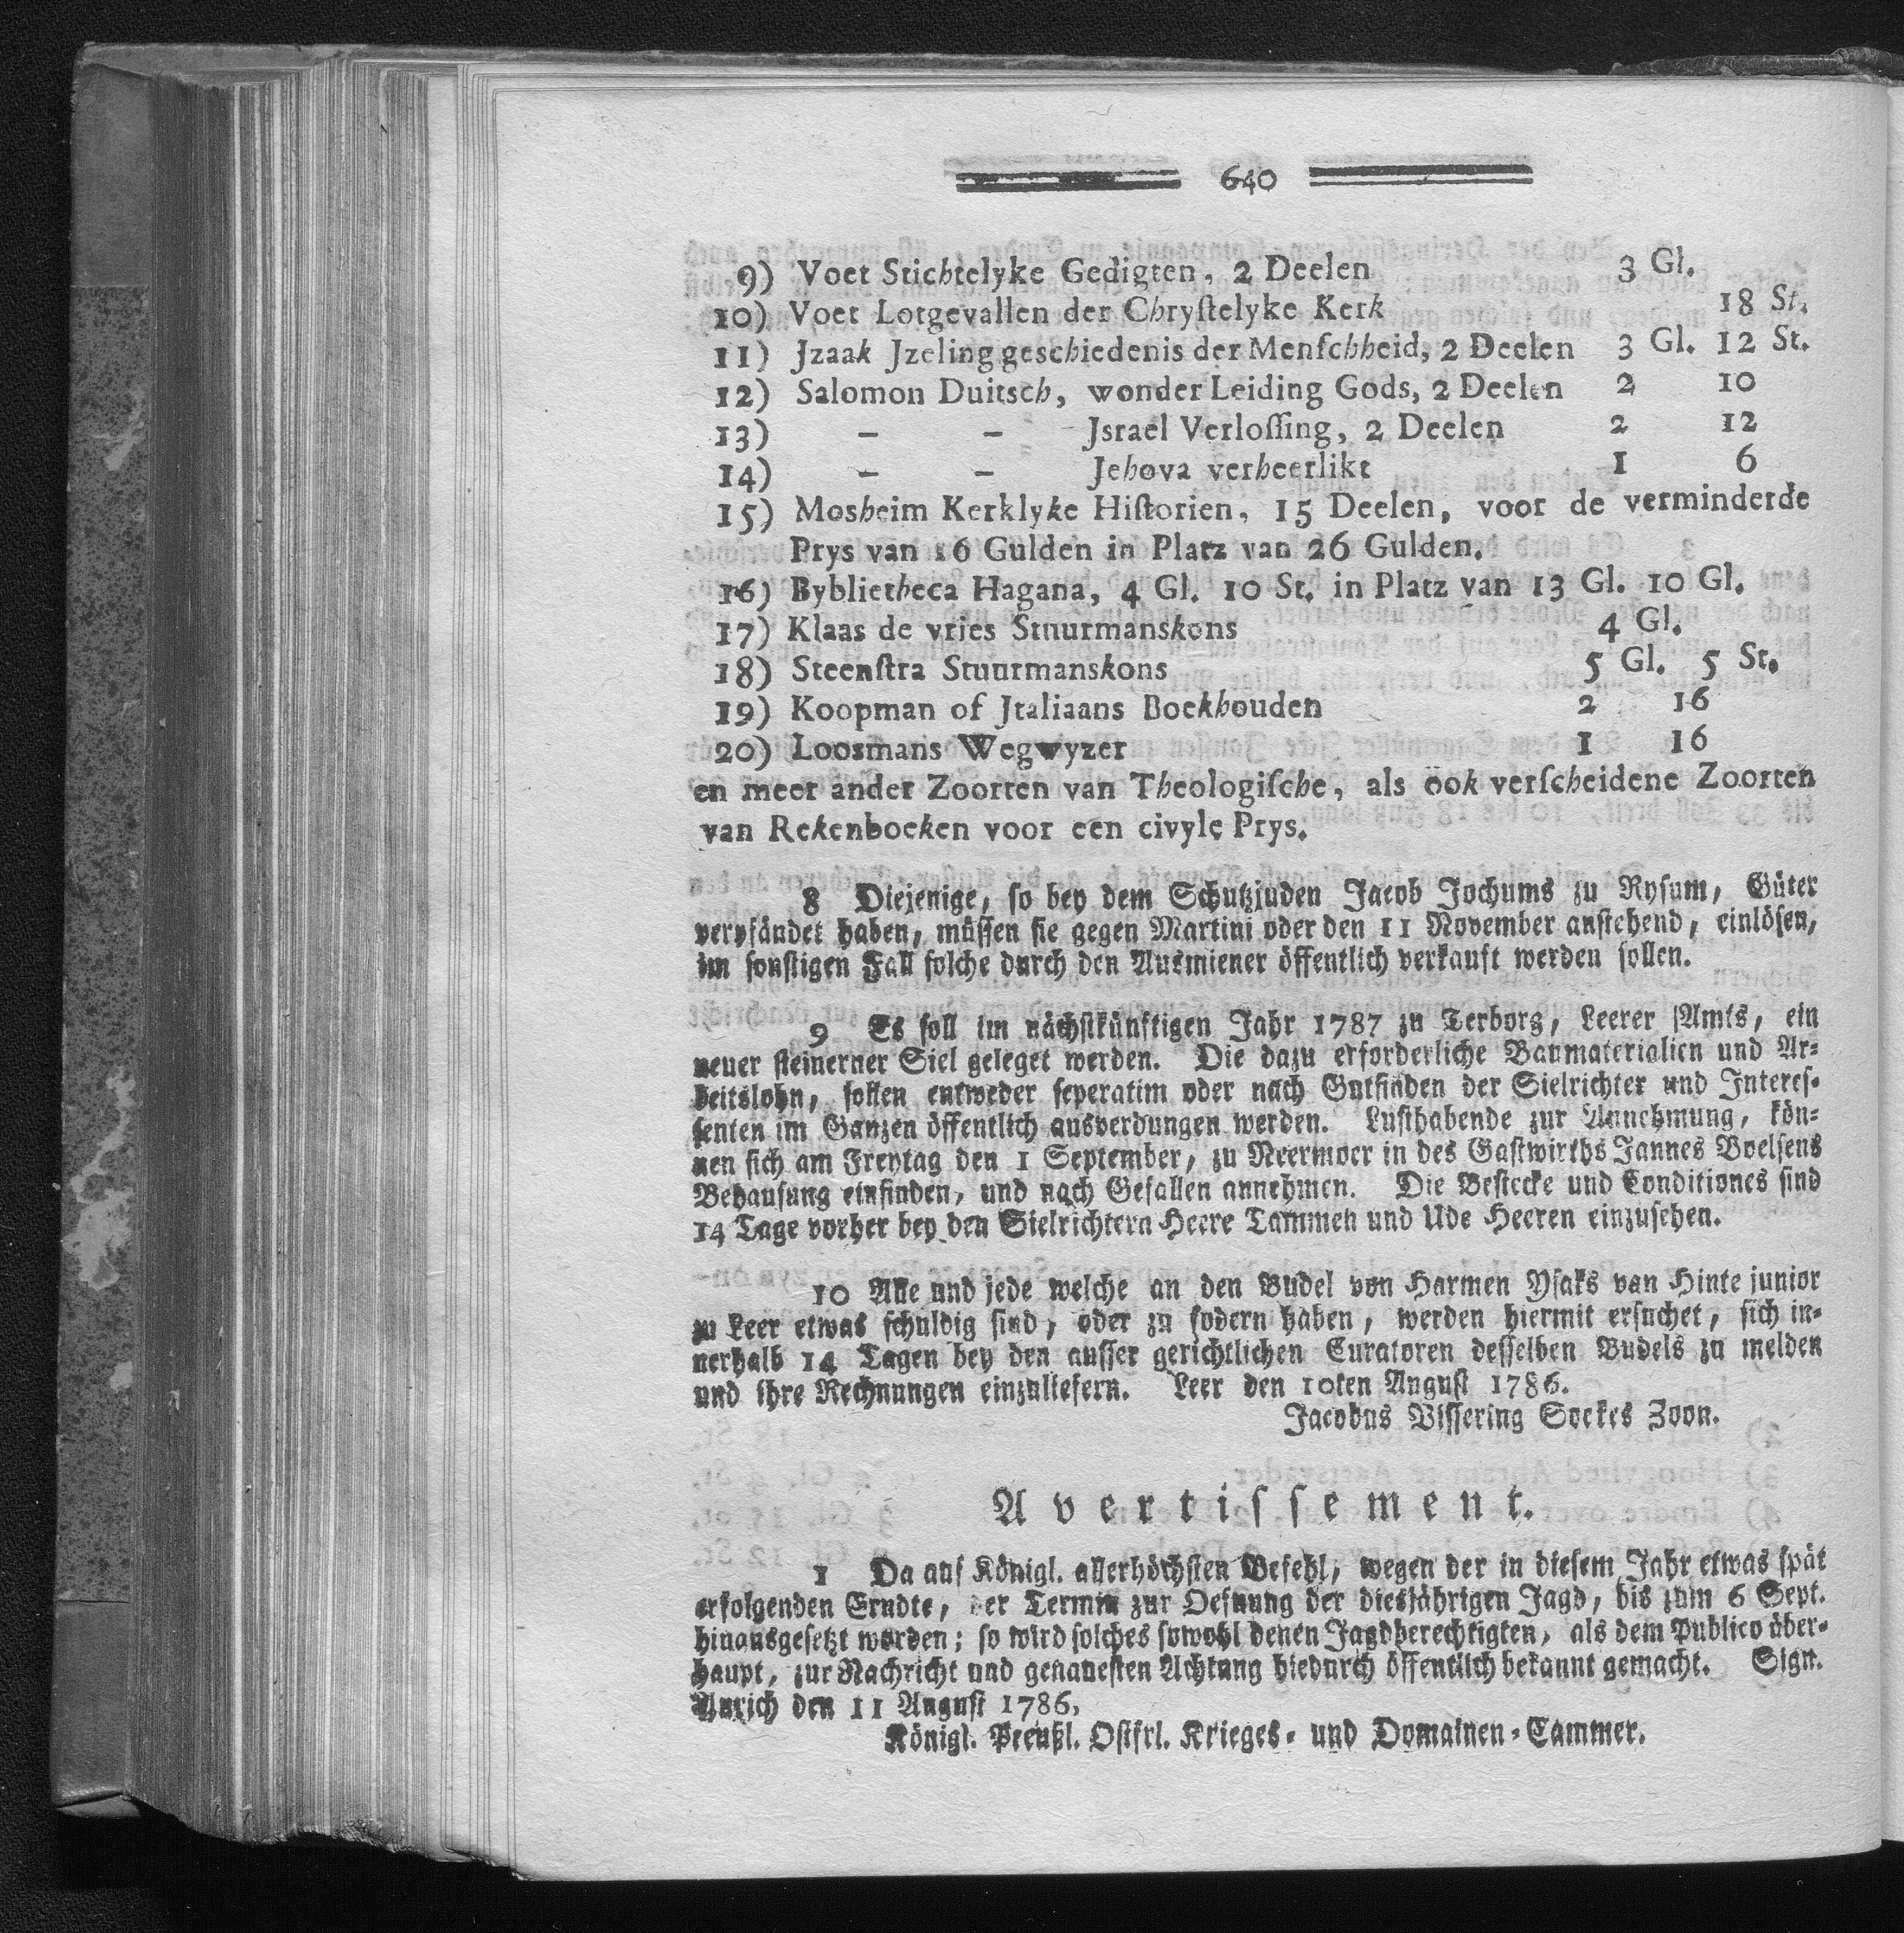 640
9) Voet Stichtelyke Gedigten, 2 Deelen 3 Gl.
10) Voet Lotgevallen der Chryſtelyke Kerk 18 St.
11) Jzaak Jzeling geschiedenis der Menſchheid, 2 Deelen 3 Gl. 12 St.
12) Salomon Duitsch, wonder Leiding Gods, 2 Deelen 2 10
13) – – Jsrael Verloſſing, 2 Deelen 2 12
14) – – Jehova verheerlikt 1 6
15) Mosheim Kerklyke Hiſtorien, 15 Deelen, voor de verminderde
Prys van 16 Gulden in Platz van 26 Gulden.
16) Byblietheca Hagana, 4 Gl. 10 St. in Platz van 13 Gl. 10 Gl.
17) Klaas de vries Stuurmanskons 4 Gl.
18) Steenſtra Stuurmanskons 5 Gl. 5 St.
19) Koopman of Jtaliaans Boekhouden 2 16
20) Loosmans Wegwyzer 1 16
en meer ander Zoorten van Theologiſche, als ook verſcheidene Zoorten
van Rekenboeken voor een civyle Prys.
8 Diejenige, so bey dem Schutzjuden Jacob Jochums zu Rysum, Güter
verpfändet haben, müssen sie gegen Martini oder den 11 November anstehend, einlösen,
im sonstigen Fall solche durch den Ausmiener öffentlich verkauft werden sollen.
9 Es soll im nächstkünftigen Jahr 1787 zu Terborg, Leerer Amts, ein
neuer steinerner Siel geleget werden. Die dazu erforderliche Baumaterialien und Ar-
beitslohn, sollen entweder seperatim oder nach Gutfinden der Sielrichter und Interes-
senten im Ganzen öffentlich ausverdungen werden. Lusthabende zur Annehmung, kön-
nen sich am Freytag den 1 September, zu Neermoer in des Gastwirths Jannes Boelsens
Behausung einfinden, und nach Gefallen annehmen. Die Bestecke und Conditiones sind
14 Tage vorher bey den Sielrichtern Heere Tammen und Ude Heeren einzusehen.
10 Alle und jede welche an den Budel von Harmen Ysaks van Hinte junior
zu Leer etwas schuldig sind, oder zu fodern haben, werden hiermit ersuchet, sich in-
nerhalb 14 Tagen bey den ausser gerichtlichen Curatoren desselben Budels zu melden
und ihre Rechnungen einzuliefern. Leer den 10ten August 1786.
Jacobus Vissering Soekes Zoon.
Avertissement.
1 Da auf Königl. allerhöchsten Befehl, wegen der in diesem Jahr etwas spät
erfolgenden Erndte, der Termin zur Oefnung der diesjährigen Jagd, bis zum 6 Sept.
hinausgesetzt worden; so wird solches sowohl denen Jagdberechtigten, als dem Publico über-
haupt, zur Nachricht und genauesten Achtung hiedurch öffentlich bekannt gemacht. Sign.
Aurich den 11 August 1786,
Königl. Preußl. Ostfrl. Krieges- und Domainen-Cammer.